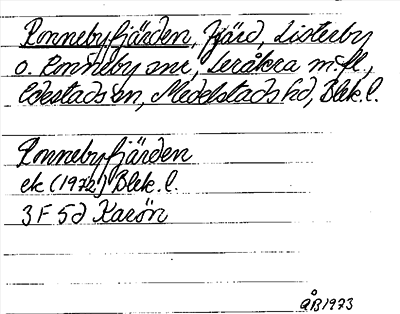 Ronnebyfjärden, fjärd, Listerby
o. Ronneby snr, Leråkra m.fl.,
Edestads sn, Medelstads hd, Blek. l.
Ronnebyfjärden
ek (1972) Blek. l.
3 F 5d Karön
ÅB 1973